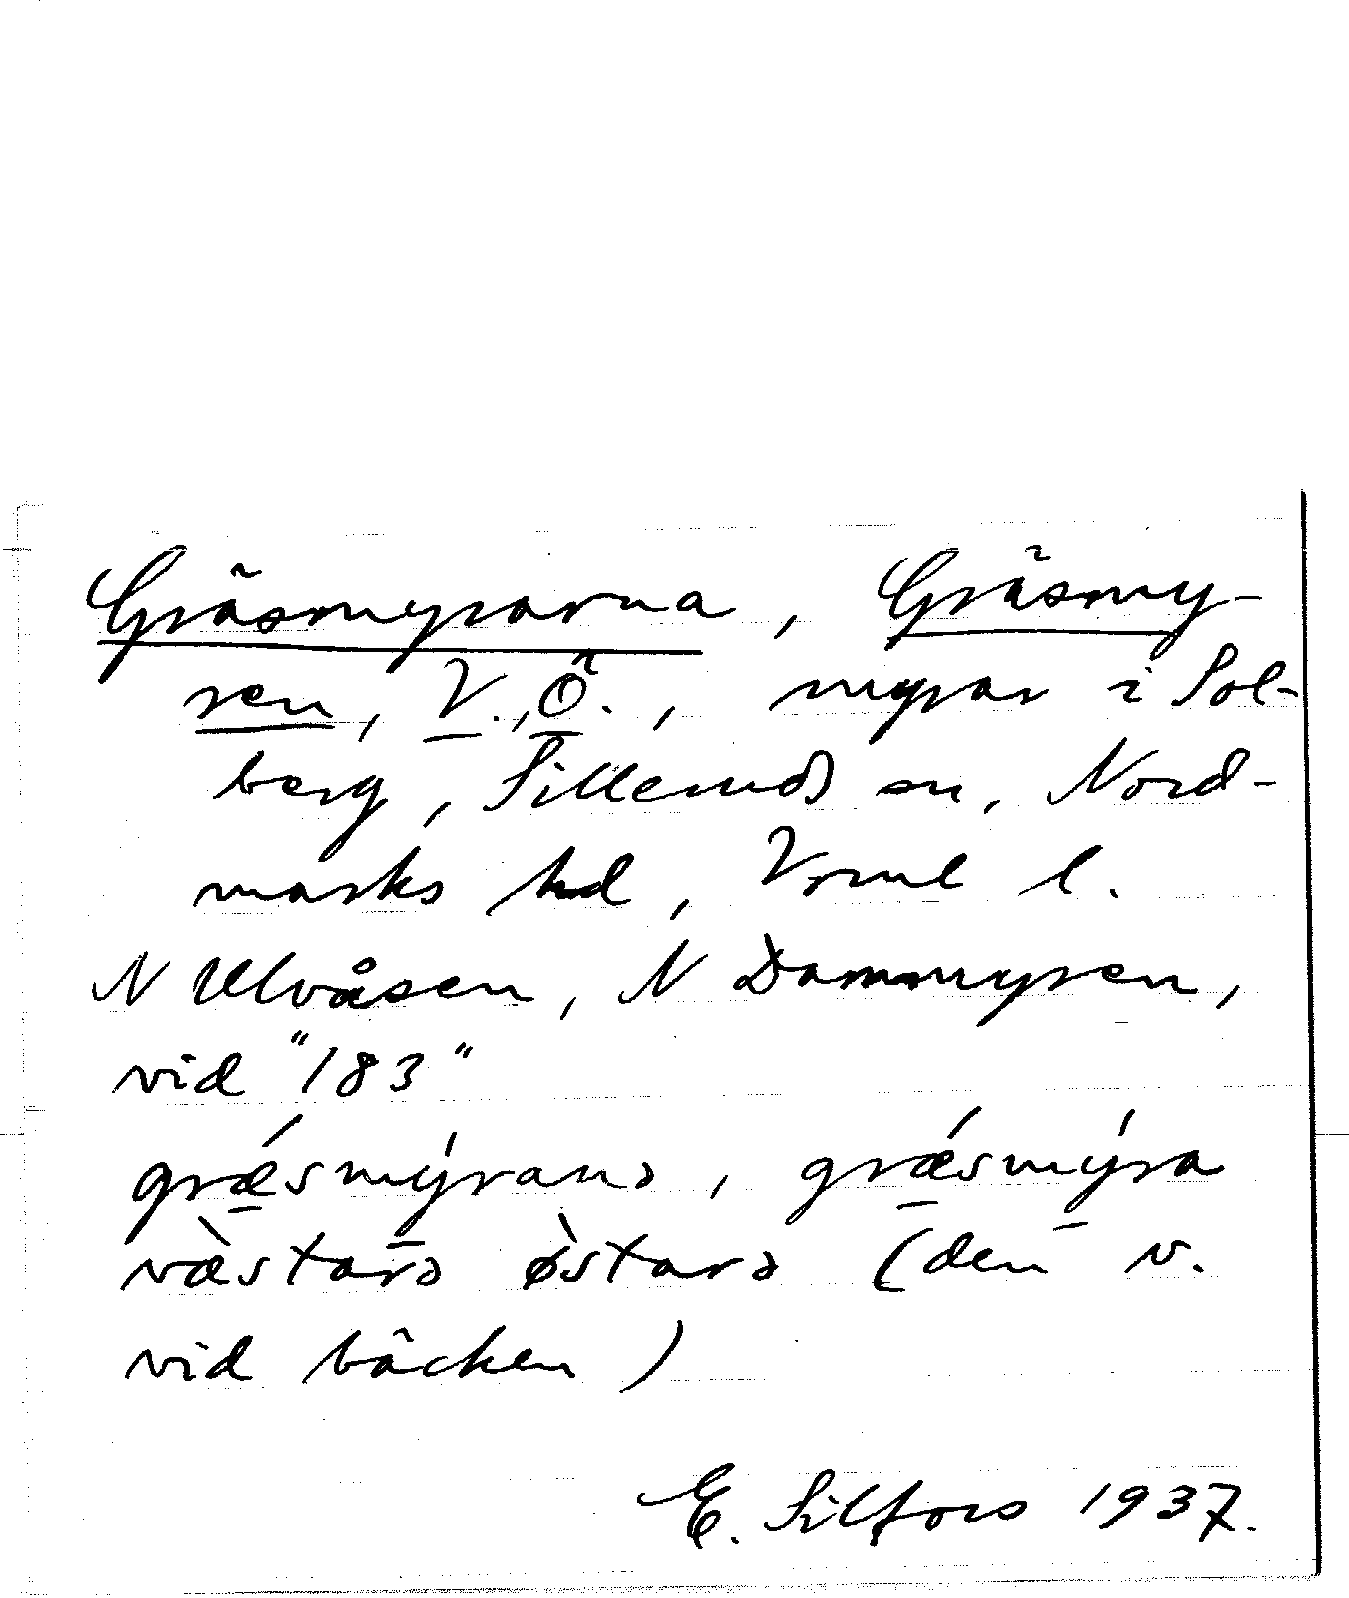 Gräsmyrarna, Gräsmy-
ren, V., Ö., myrar i Sol-
berg, Silleruds sn, Nord-
marks hd, Vrml l.
N Ulvåsen, N Dammyren,
vid "183"
grǽ̲smýranə, grǽ̲smýra
væ̀starə ø̀starə (den v.
vid bäcken)
E. Silfors 1937.